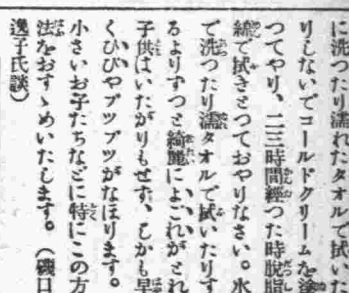 に洗つたり濡れたタオルで拭いた
りしないでコールドクリームを塗
つてやり、二三時間經つた時脱脂
綿で拭きとつておやりなさい。水
で洗つたり濡タオルで拭いたりす
るよりずつと綺麗によごれがとれ
子供はいたがりもせず、しかも早
くひびやブツブツがなほります。
小さいお子たちなどに特にこの方
法をおすゝめいたします。（磯口
逸子氏談）